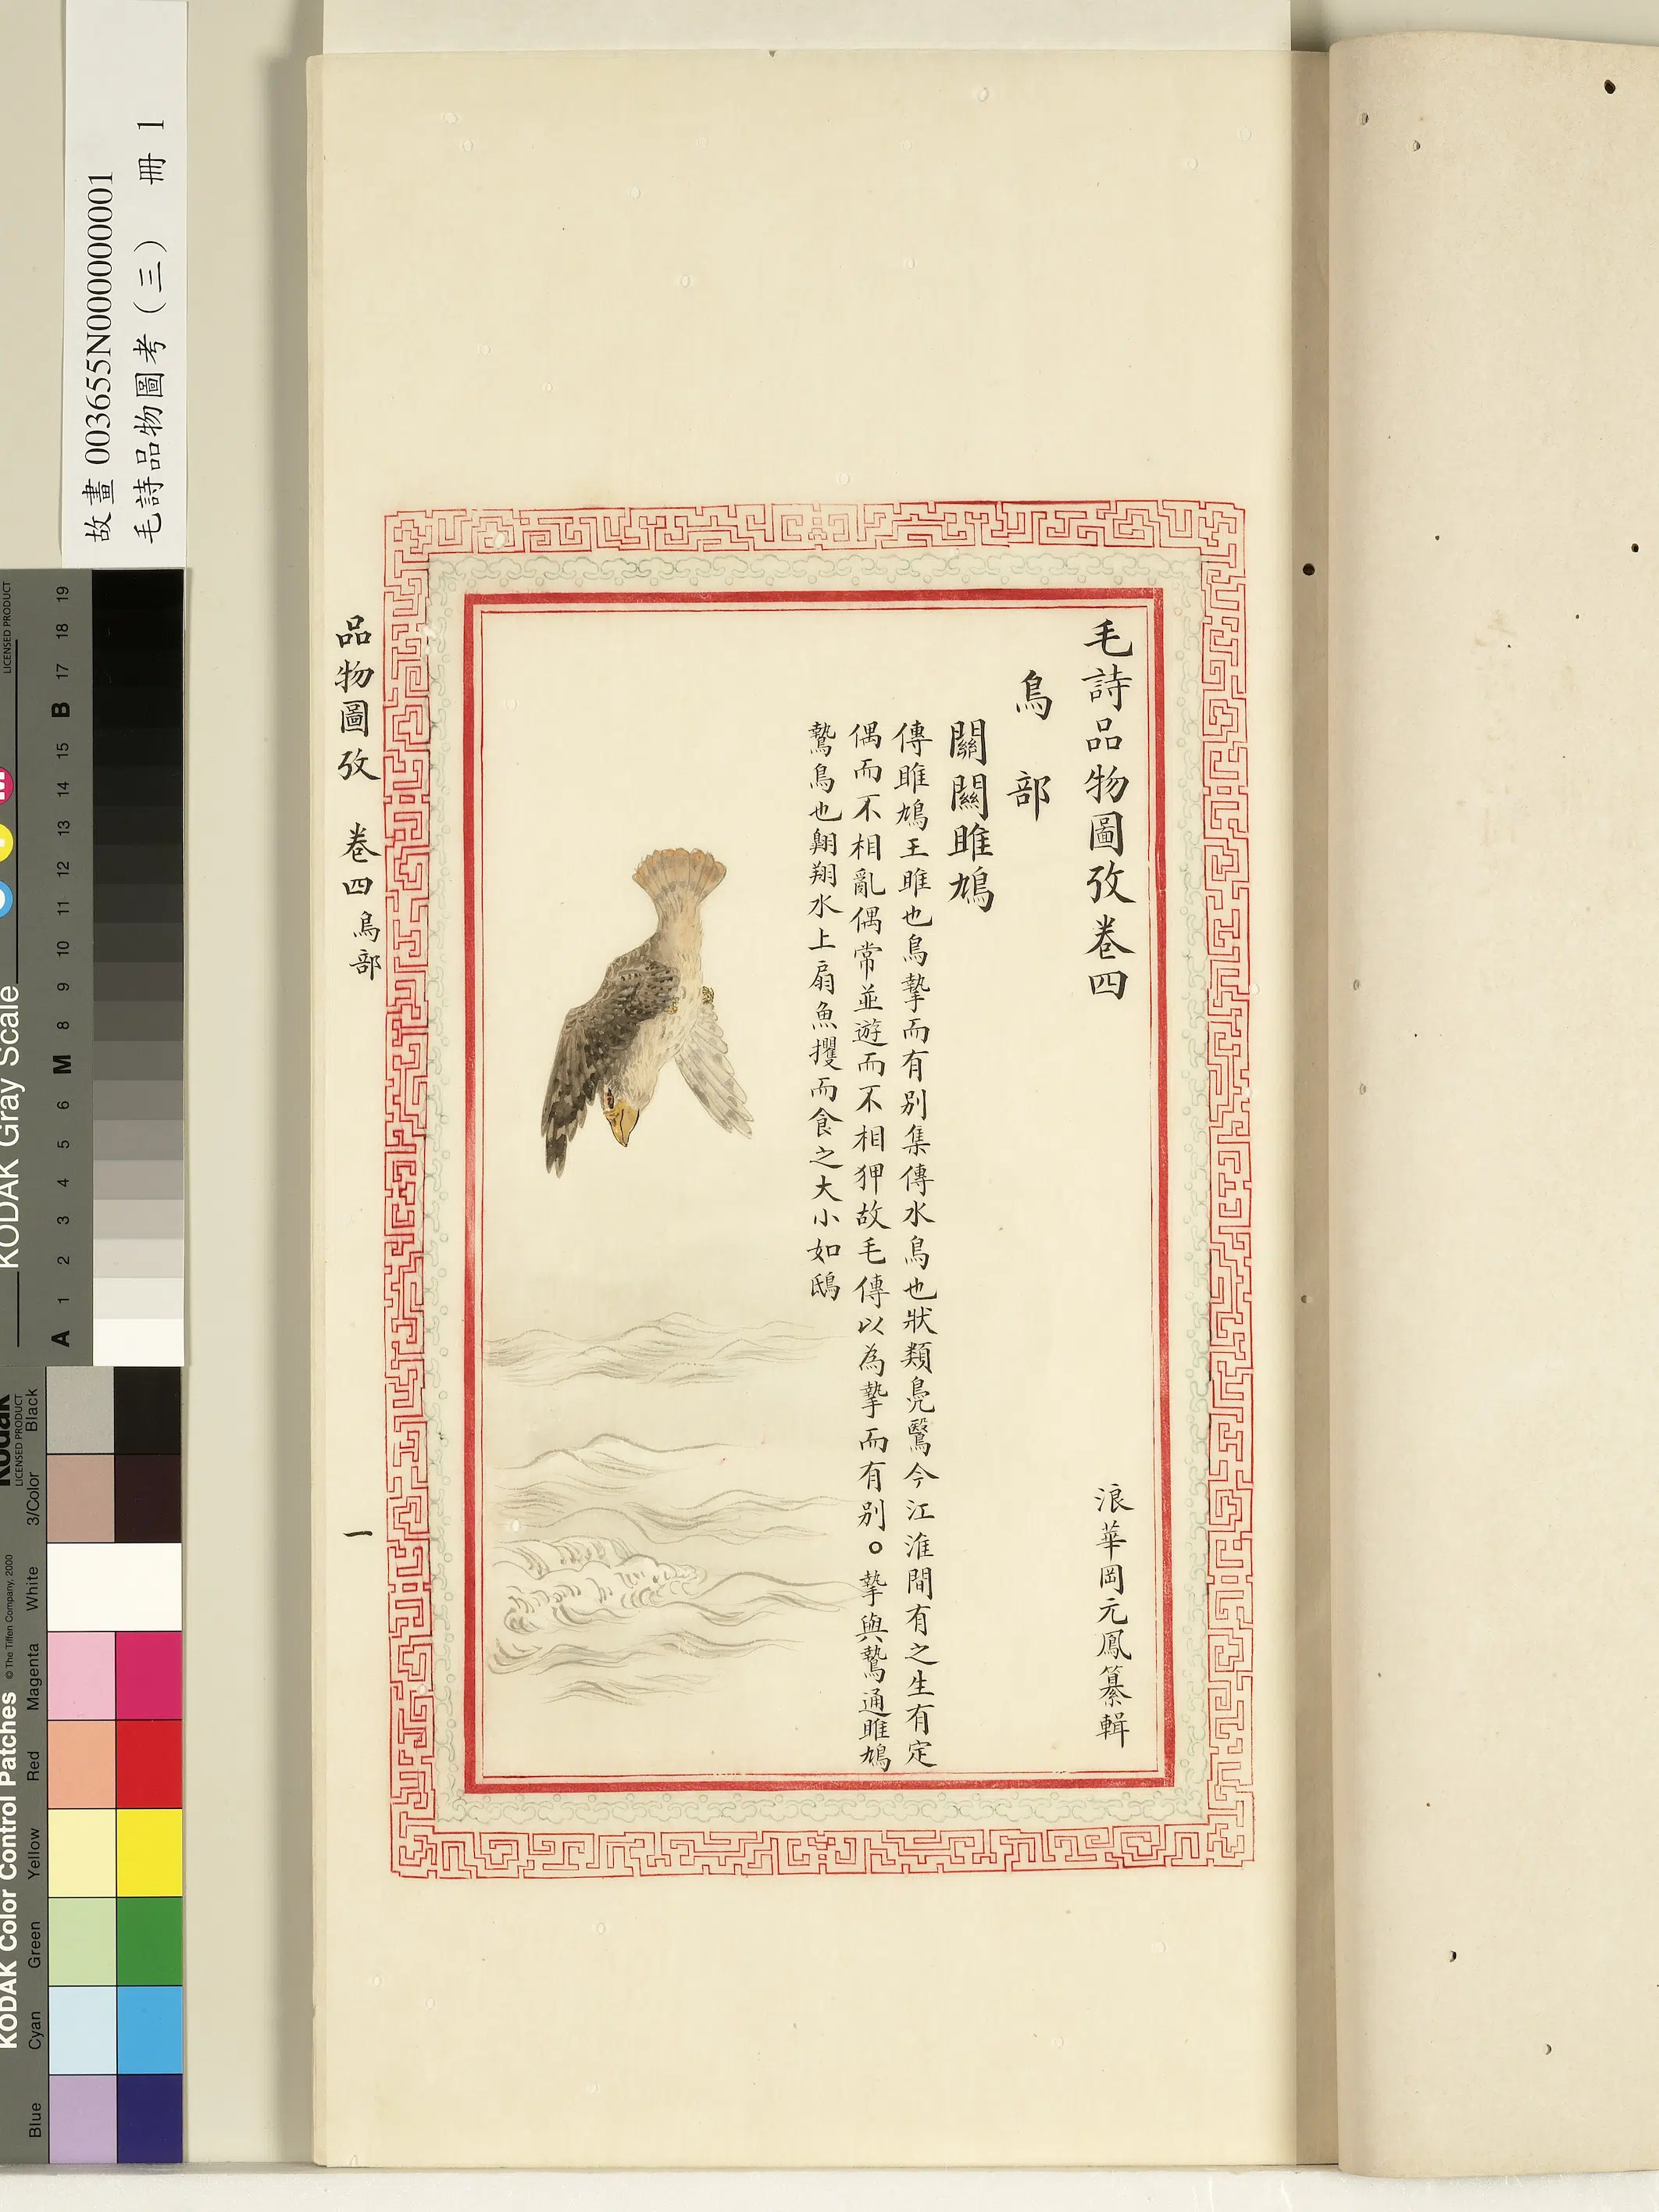 毛詩品物圖攷卷四
浪華岡元鳳纂輯
鳥部
關關雎鳩
傳雎鳩王雎也鳥摯而有別集傳水鳥也狀類鳧鷖今江淮間有之生有定
偶而不相亂偶常並遊而不相狎故毛傳以為摯而有別。摯與鷙通雎鳩
鷙鳥也翱翔水上扇魚攫而食之大小如鴟
品物圖攷 卷四 鳥部 一
故畫 003655N000000001
毛詩品物圖考（三） 冊 1
KODAK Gray Scale
LICENSED PRODUCT
A 1 2 3 4 5 6 M 8 9 10 11 12 13 14 15 B 17 18 19
KODAK Color Control Patches
© The Tiffen Company, 2000
Kodak
LICENSED PRODUCT
Blue Cyan Green Yellow Red Magenta White 3/Color Black